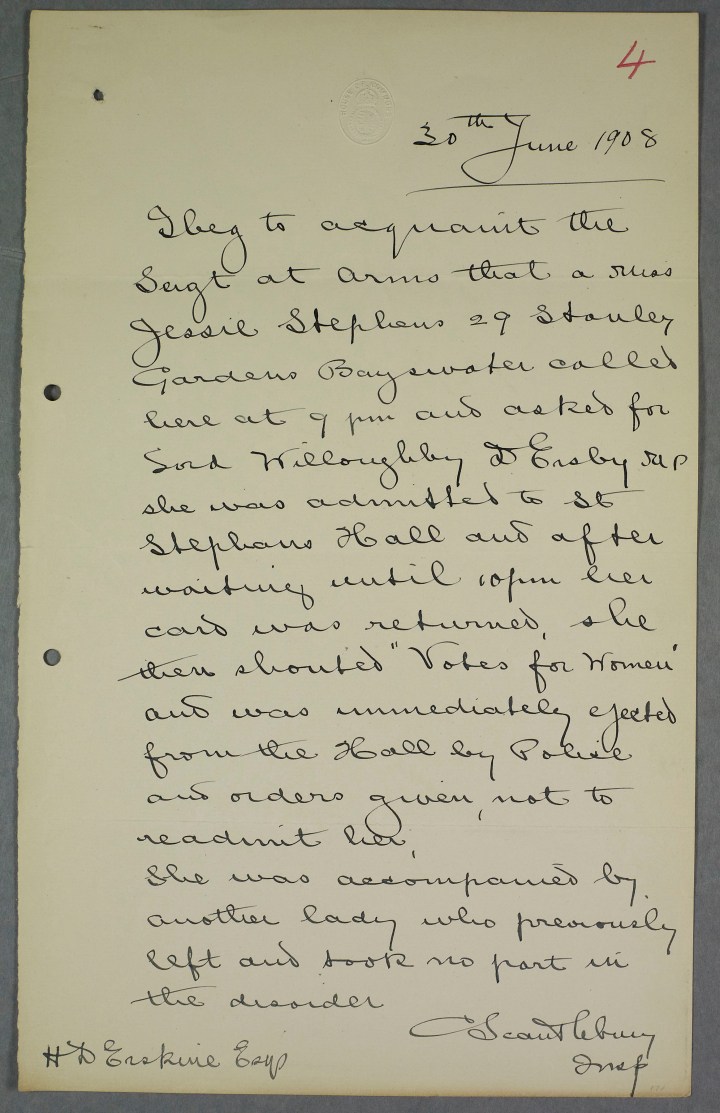 4
30th June 1908
I beg to acquaint the
Sergt at Arms that a Miss
Jessie Stephens 29 Stanley
Gardens Bayswater called
here at 9 pm and asked for
Lord Willoughby D Ersby MP
she was admitted to St
Stephans Hall and after
waiting until 10pm her
card was returned, she
then shouted "Votes for Women"
and was immediately ejected
from the Hall by Police
and orders given, not to
readmit her,
She was accompanied by
another lady who previously
left and took no part in
the disorder
C Scantlebury
Insp
H D Erskine Esq